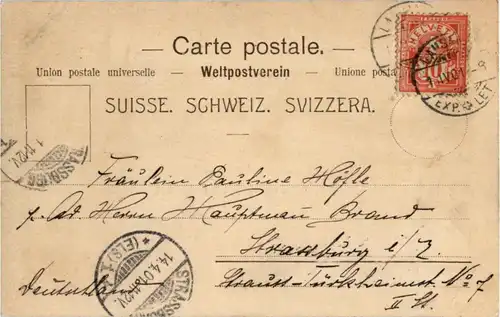 Carte postale.
Union postale universelle – Weltpostverein – Unione posta
SUISSE. SCHWEIZ. SVIZZERA.
HELVETIA
EXP. LET
Fräulein Pauline Höfle
p. Ad. Herrn Hauptmann Brand
Strassburg i/E.
Deutschland
Strauss-Dürkheimst. No 7
II St.
STRASSBURG
(ELS.)
14.4.01
STRASSBURG